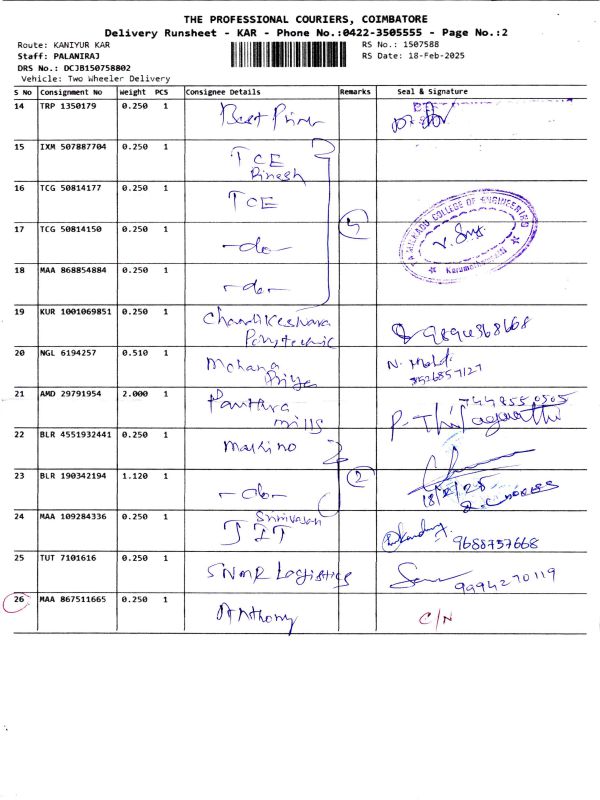 THE PROFESSIONAL COURIERS, COIMBATORE
Delivery Runsheet - KAR - Phone No.:0422-3505555 - Page No.:2
Route: KANIYUR KAR RS No.: 1507588
Staff: PALANIRAJ RS Date: 18-Feb-2025
DRS No.: DCJB150758802
Vehicle: Two Wheeler Delivery
S No Consignment No Weight PCS Consignee Details Remarks Seal & Signature
14 TRP 1350179 0.250 1 Best Prime
15 IXM 507887704 0.250 1 TCE
Dinesh
16 TCG 50814177 0.250 1 TCE
17 TCG 50814150 0.250 1 -do-
COLLEGE OF ENGINEERING
18 MAA 868854884 0.250 1 -do-
19 KUR 1001069851 0.250 1 Chandikeshara
Polytechnic 9894868168
20 NGL 6194257 0.510 1 Mohana
Priya 8526857127
21 AMD 29791954 2.000 1 Panthra
mills 7448550505
22 BLR 4551932441 0.250 1 Makino
23 BLR 190342194 1.120 1 -do- 2
18/2/25
24 MAA 109284336 0.250 1 Srinivasan
JIT 9688757668
25 TUT 7101616 0.250 1 SNMR Logistics 9994270119
26 MAA 867511665 0.250 1 Anthony C/N